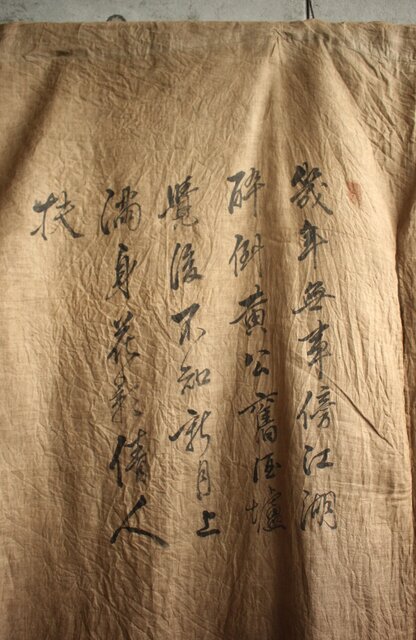 幾年無事傍江湖
醉倒黃公舊酒壚
覺後不知新月上
滿身花影倩人
扶